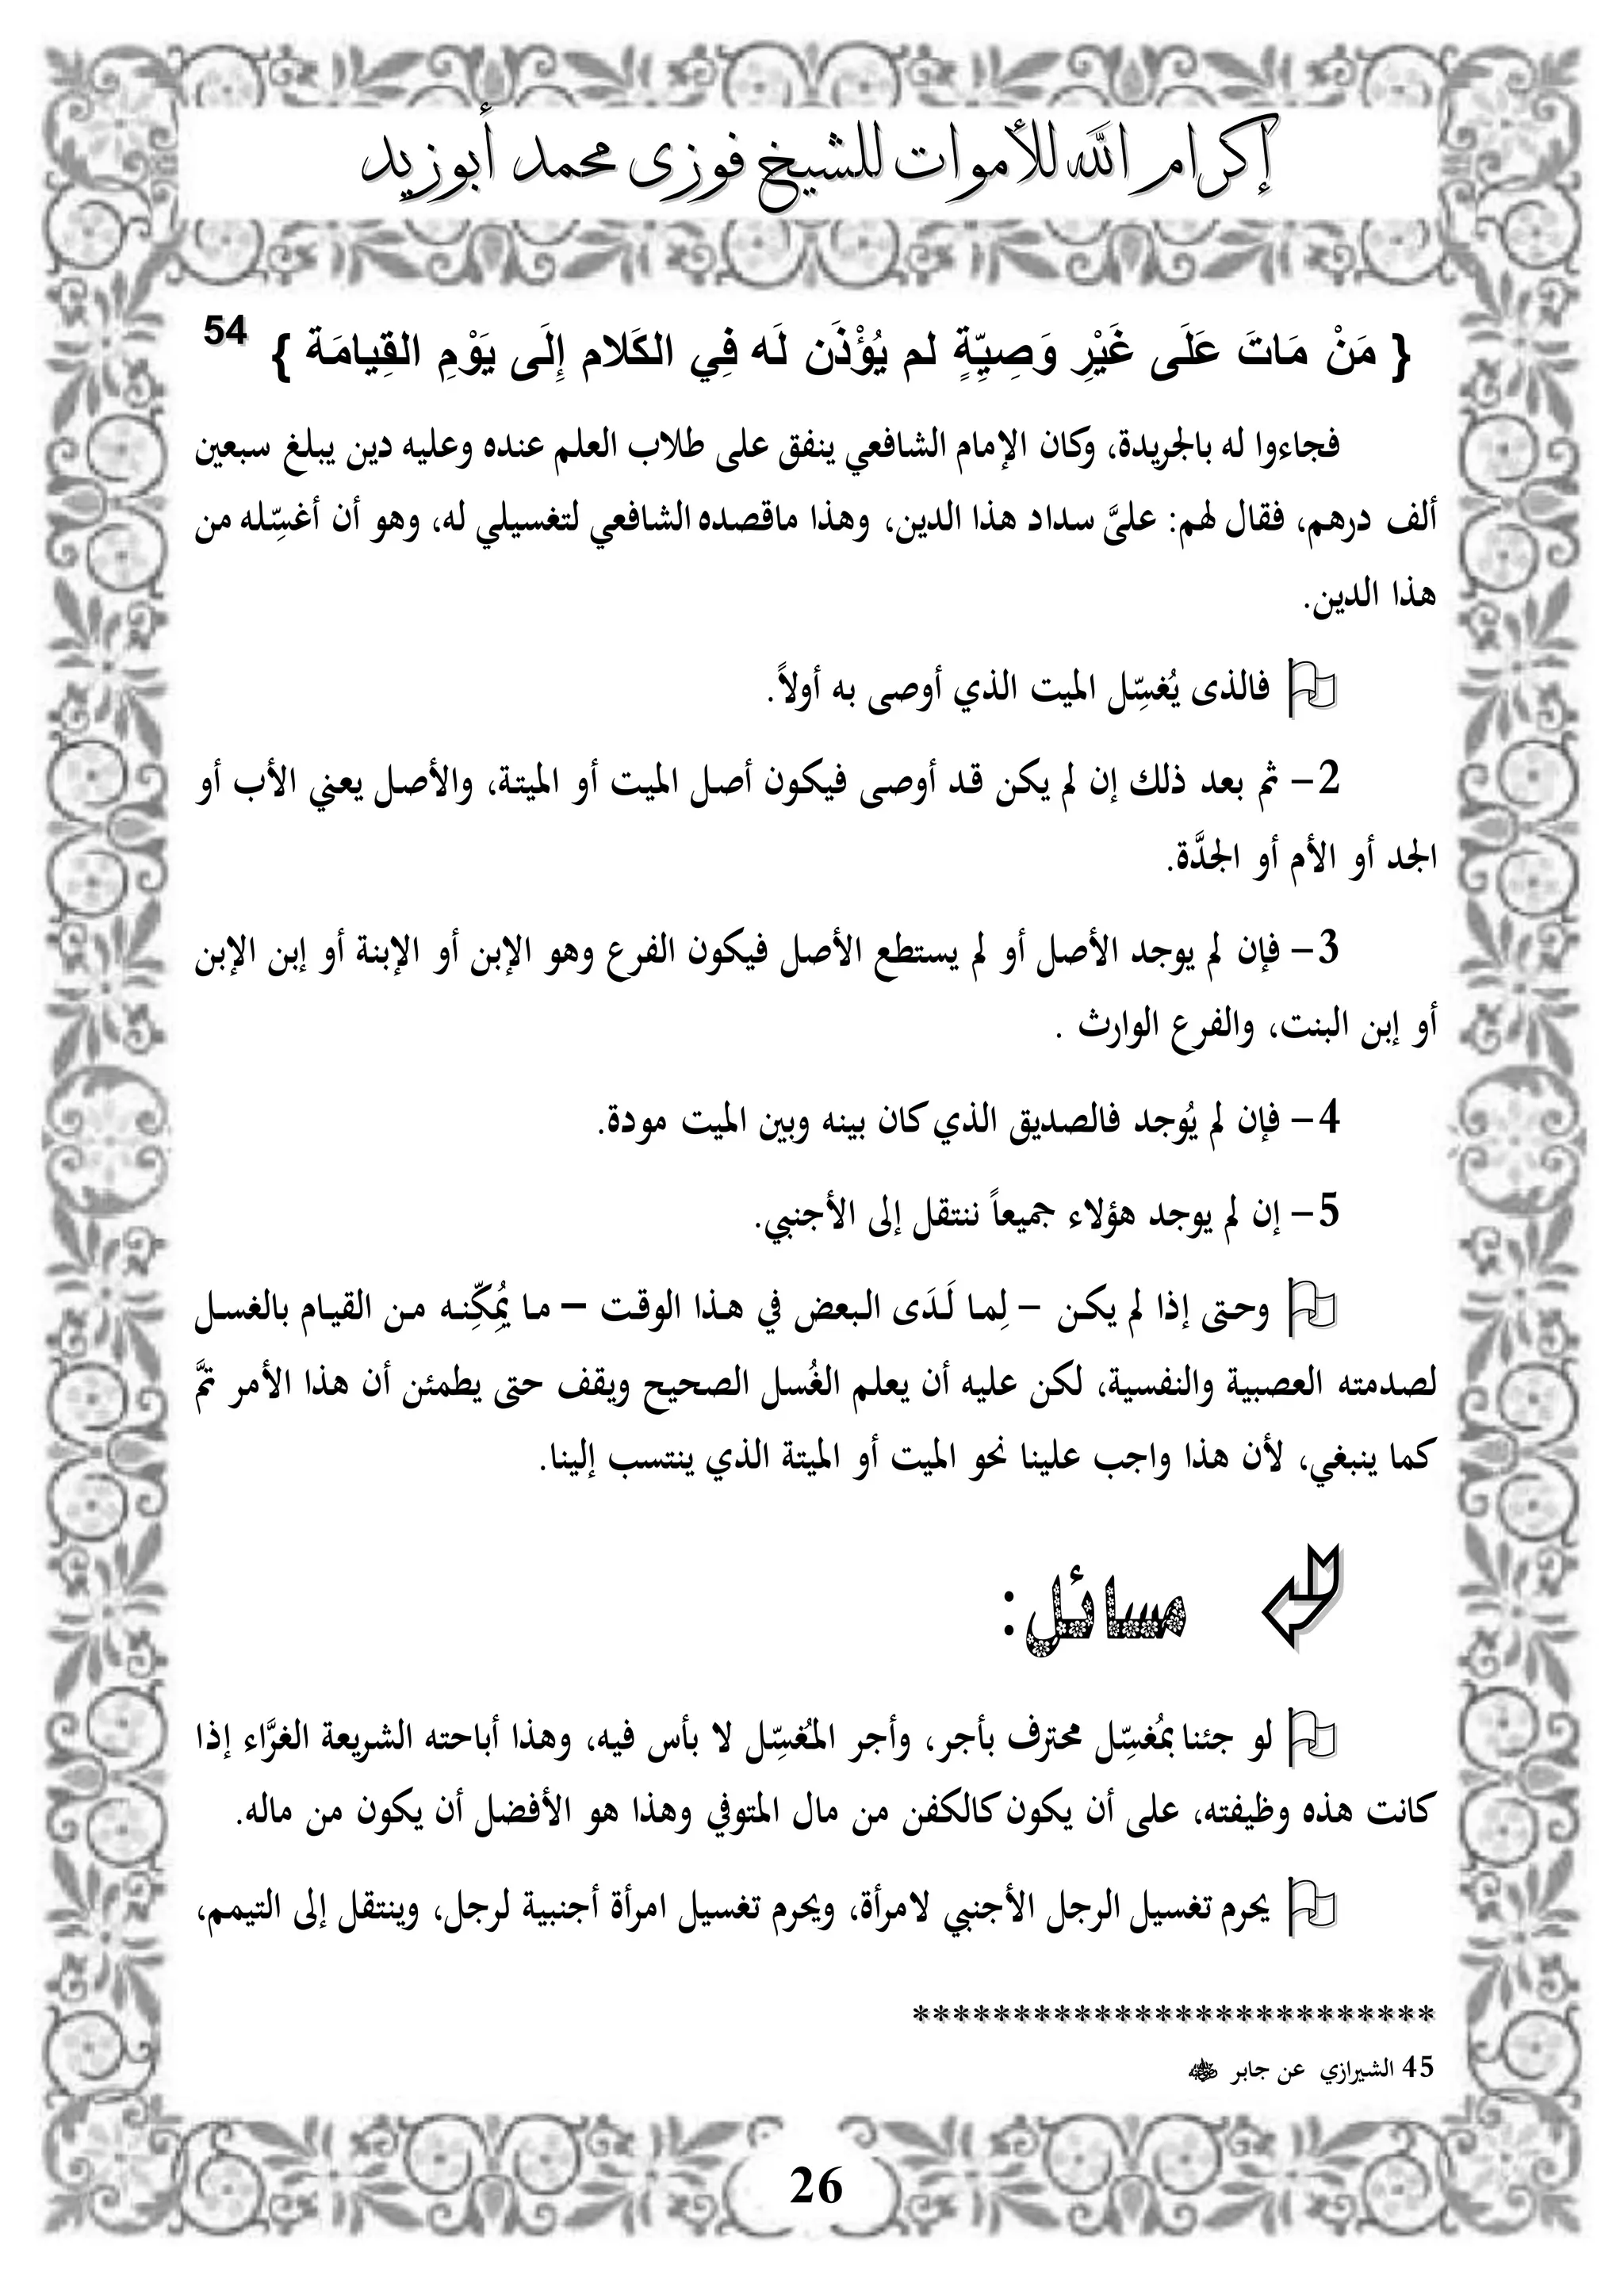 إكرام الله للأموات للشيخ فوزى محمد أبوزيد
{ مَنْ مَاتَ عَلَى غَيْرِ وَصِيّةٍ لم يُؤْذَن لَه فِي الكَلام إِلَى يَوْمِ القِيامَة } 54
فجاءوا له بالجريدة، وكان الإمام الشافعي ينفق على طلاب العلم عنده وعليه دين يبلغ سبعين
ألف درهم، فقال لهم: علىَّ سداد هذا الدين، وهذا ماقصده الشافعي لتغسيلي له، وهو أن أغسِّله من
هذا الدين.
فالذى يُغسِّل الميت الذي أوصى به أولاً.
2- ثم بعد ذلك إن لم يكن قد أوصى فيكون أصل الميت أو الميتة، والأصل يعني الأب أو
الجد أو الأم أو الجدَّة.
3- فإن لم يوجد الأصل أو لم يستطع الأصل فيكون الفرع وهو الإبن أو الإبنة أو إبن الإبن
أو إبن البنت، والفرع الوارث .
4- فإن لم يُوجد فالصديق الذي كان بينه وبين الميت مودة.
5- إن لم يوجد هؤلاء جميعاً ننتقل إلى الأجنبي.
وحتى إذا لم يكن – لِما لَدَى البعض في هذا الوقت – ما يُمَكِّنه من القيام بالغسل
لصدمته العصبية والنفسية، لكن عليه أن يعلم الغُسل الصحيح ويقف حتى يطمئن أن هذا الأمر تمَّ
كما ينبغي، لأن هذا واجب علينا نحو الميت أو الميتة الذي ينتسب إلينا.
مسائل:
لو جئنا بمُغسِّل محترف بأجر، وأجر المُغسِّل لا بأس فيه، وهذا أباحته الشريعة الغرَّاء إذا
كانت هذه وظيفته، على أن يكون كالكفن من مال المتوفي وهذا هو الأفضل أن يكون من ماله.
يحرم تغسيل الرجل الأجنبي لامرأة، ويحرم تغسيل امرأة أجنبية لرجل، وينتقل إلى التيمم،
**************************
45 الشيرازي عن جابر
26